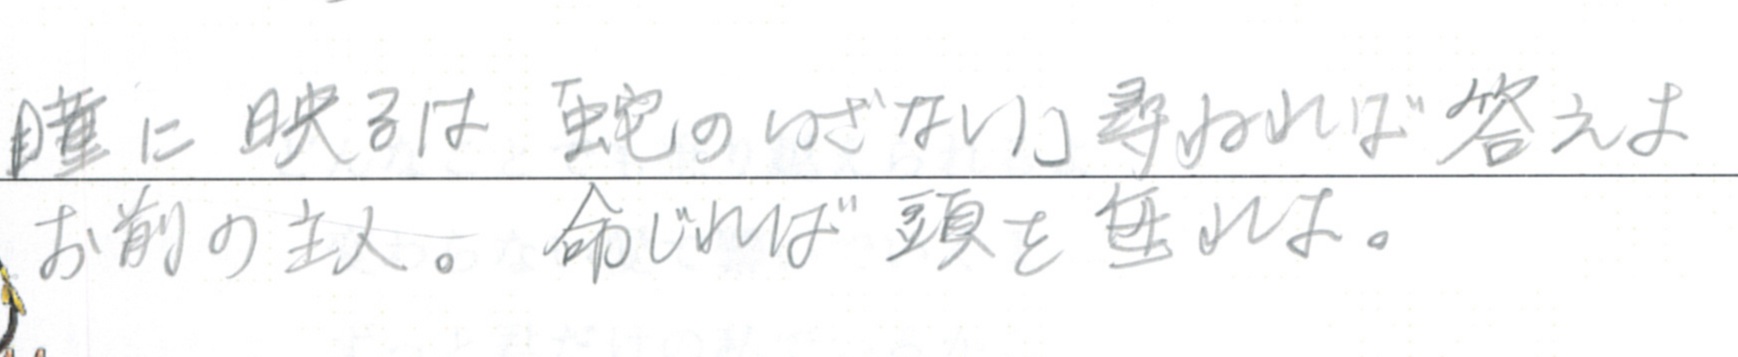 瞳に映るは「蛇のいざない」尋ねれば答えよ
お前の主人。命じれば頭を垂れよ。